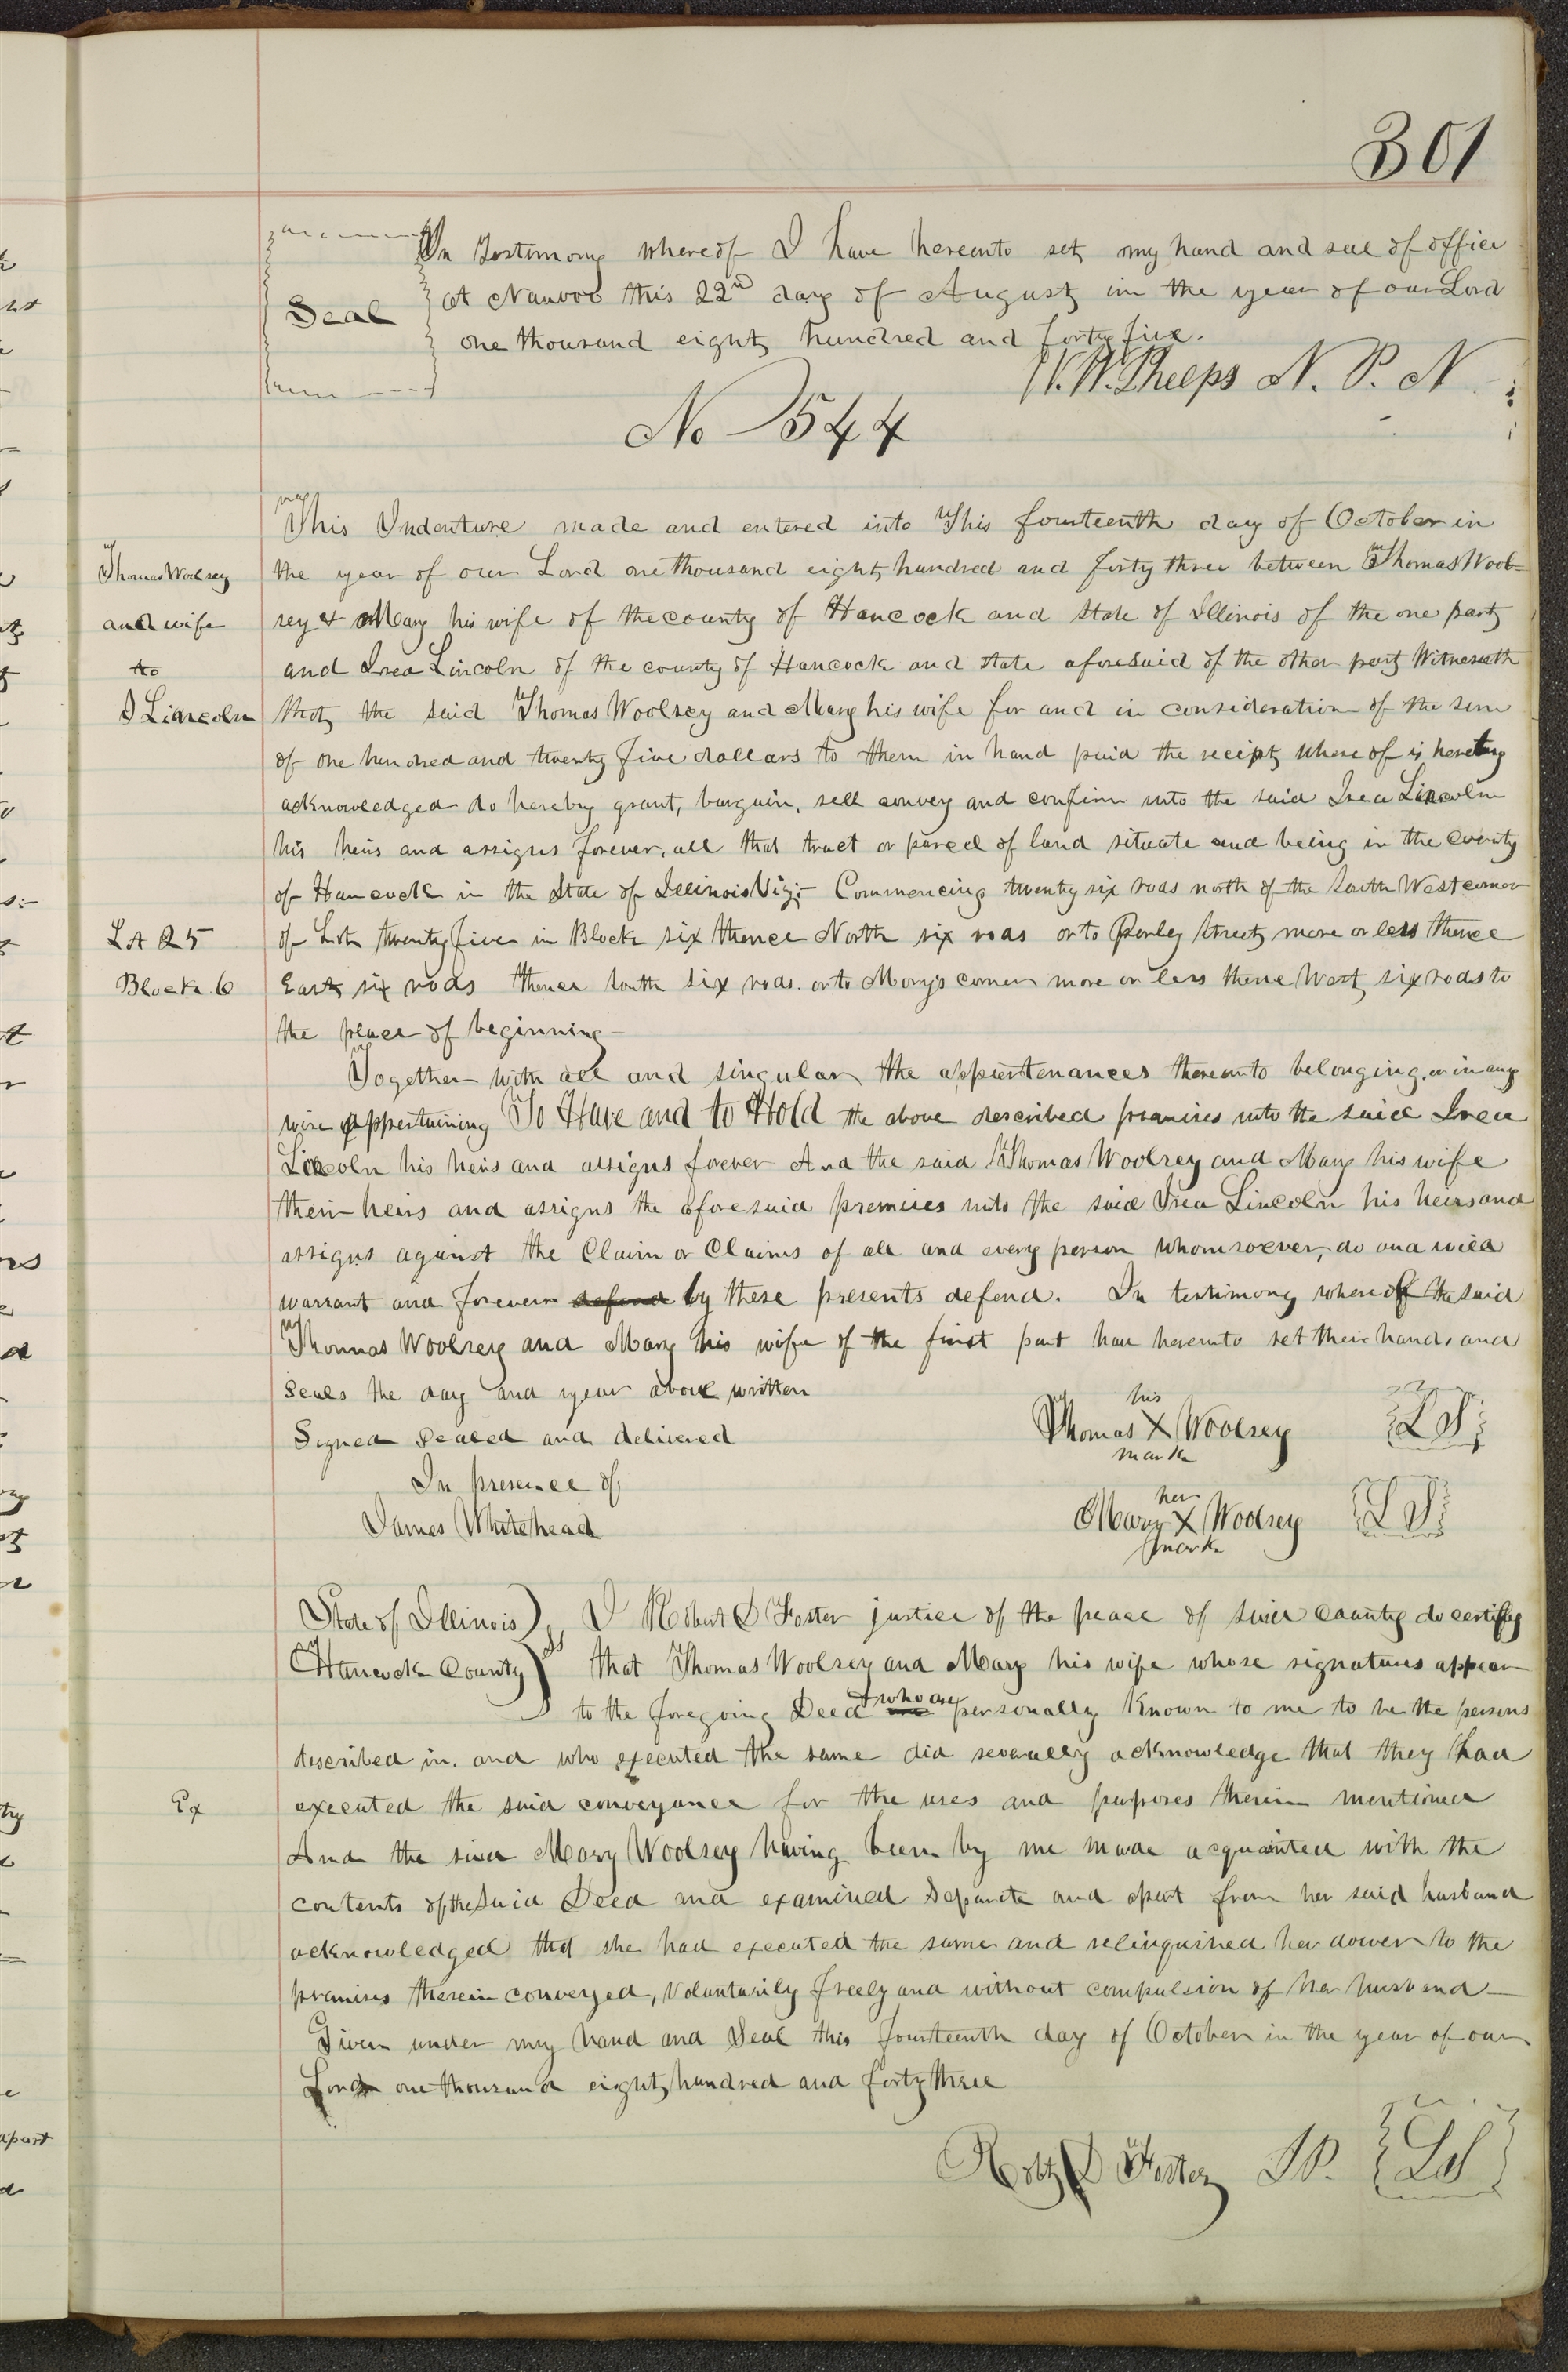 301
In Testimony whereof I have hereunto set my hand and seal of office
Seal
at Nauvoo this 22nd day of August in the year of our Lord
one thousand eight hundred and forty five.
W. W. Phelps N. P. N
No 544
This Indenture made and entered into This fourteenth day of October in
Thomas Woolsey
the year of our Lord one thousand eight hundred and forty three between Thomas Wool=
and wife
sey & Mary his wife of the county of Hancock and State of Illinois of the one party
to
and Irea Lincoln of the county of Hancock and state aforesaid of the other part Witnesseth
I Lincoln
that the said Thomas Woolsey and Mary his wife for and in consideration of the sum
of one hundred and twenty five dollars to them in hand paid the receipt where of is hereby
acknowledged do hereby grant, bargain, sell convey and confirm unto the said Irea Lincoln
his heirs and assigns forever, all that tract or parcel of land situate and being in the county
of Hancock in the State of Illinois Viz;- Commencing twenty six rods north of the South West corner
Lot 25
of Lot twenty five in Block six thence North six rods or to Parley Street, more or less thence
Block 6
East six rods thence South six rods. or to Mory's corner more or less thence West six rods to
the place of beginning-
Together with all and singular the appurtenances thereunto belonging, or in any
wise appertaining To Have and to Hold the above described premises unto the said Irea
Lincoln his heirs and assigns forever And the said Thomas Woolsey and Mary his wife
their heirs and assigns the aforesaid premises unto the said Irea Lincoln his heirs and
assigns against the Claim or Claims of all and every person whomsoever, do and will
warrant and forever defend by these presents defend. In testimony whereof the said
Thomas Woolsey and Mary his wife of the first part have hereunto set their hands and
Seals the day and year above written
his
Thomas X Woolsey LS
mark
Signed Sealed and delivered
In presence of
James Whitehead
her
Mary X Woolsey LS
mark
State of Illinois) ss I Robert D Foster justice of the peace of said county do certify
Hancock County) that Thomas Woolsey and Mary his wife whose signatures appear
to the foregoing Deed & who are personally Known to me to be the persons
described in. and who executed the same did severally acknowledge that they had
Ex
executed the said conveyance for the uses and purposes therein mentioned
And the said Mary Woolsey having been by me made acquainted with the
contents of the said Deed and examined Separate and apart from her said husband
acknowledged that she had executed the same and relinquished her dower to the
premises therein conveyed, Voluntarily freely and without compulsion of her husband-
Given under my hand and Seal this fourteenth day of October in the year of our
Lord one thousand eight hundred and forty three
Robt D Foster J P. LS